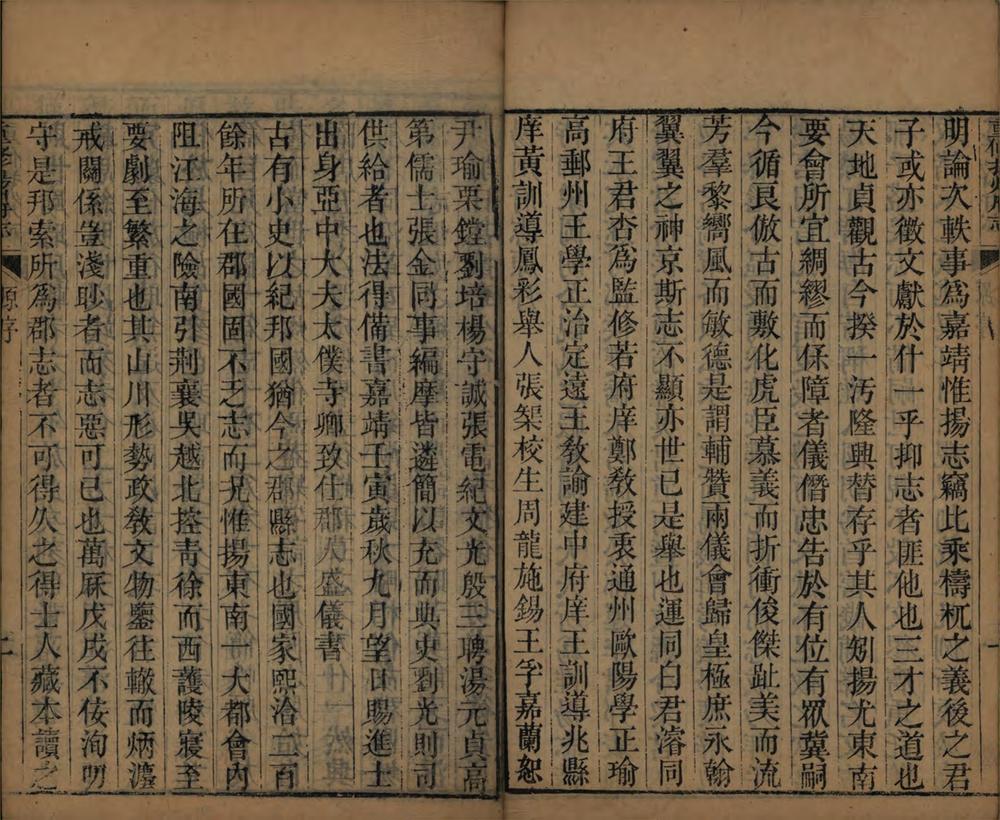 明論次軼事爲嘉靖惟揚志竊比乘檮杌之義後之君
子或亦徵文獻於什一乎抑志者匪他也三才之道也
天地貞觀古今揆一汚隆興替存乎其人矧揚尤東南
要會所宜綢繆而保障者儀僭忠告於有位有眾冀嗣
今循良倣古而敷化虎臣慕義而折衝俊傑趾美而流
芳羣黎嚮風而敏德是謂輔贊兩儀會歸皇極庶永翰
翼翼之神京斯志不顯亦世已是舉也運同白君濬同
府王君杏爲監修若府庠鄭敎授褧通州歐陽學正瑜
高郵州王學正治定遠王敎諭建中府庠王訓導兆縣
庠黃訓導鳳彩舉人張栔校生周龍施錫王孚嘉蘭恕
尹瑜栗鏜劉培楊守誠張電紀文光殷三聘湯元貞高
第儒士張金同事編摩皆遴簡以充而典史劉光則司
供給者也法得備書嘉靖壬寅歲秋九月望日賜進士
出身亞中大夫太僕寺卿致仕郡人盛儀書
古有小史以紀邦國猶今之郡縣志也國家熙洽二百
餘年所在郡國固不乏志而况惟揚東南一大都會內
阻江海之險南引荆襄吳越北控靑徐而西護陵寢至
要劇至繁重也其山川形勢政敎文物鑒往轍而炳灋
戒關係豈淺眇者而志惡可已也萬厤戊戌不佞洵叨
守是邦索所爲郡志者不可得久之得士人藏本讀之
原序
二
一